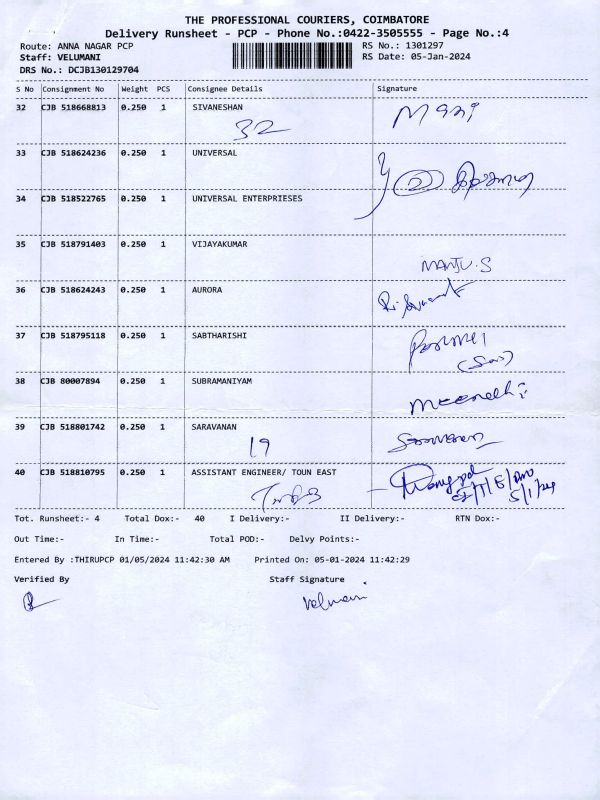 THE PROFESSIONAL COURIERS, COIMBATORE
Delivery Runsheet - PCP - Phone No.:0422-3505555 - Page No.:4
Route: ANNA NAGAR PCP RS No.: 1301297
Staff: VELUMANI RS Date: 05-Jan-2024
DRS No.: DCJB130129704
S No Consignment No Weight PCS Consignee Details Signature
32 CJB 518668813 0.250 1 SIVANESHAN Mani
32
33 CJB 518624236 0.250 1 UNIVERSAL
2
34 CJB 518522765 0.250 1 UNIVERSAL ENTERPRIESES
35 CJB 518791403 0.250 1 VIJAYAKUMAR
MANJU.S
36 CJB 518624243 0.250 1 AURORA
37 CJB 518795118 0.250 1 SABTHARISHI
38 CJB 80007894 0.250 1 SUBRAMANIYAM
39 CJB 518801742 0.250 1 SARAVANAN
19
40 CJB 518810795 0.250 1 ASSISTANT ENGINEER/ TOUN EAST
5/1/24
Tot. Runsheet:- 4 Total Dox:- 40 I Delivery:- II Delivery:- RTN Dox:-
Out Time:- In Time:- Total POD:- Delvy Points:-
Entered By :THIRUPCP 01/05/2024 11:42:30 AM Printed On: 05-01-2024 11:42:29
Verified By Staff Signature
Velmani